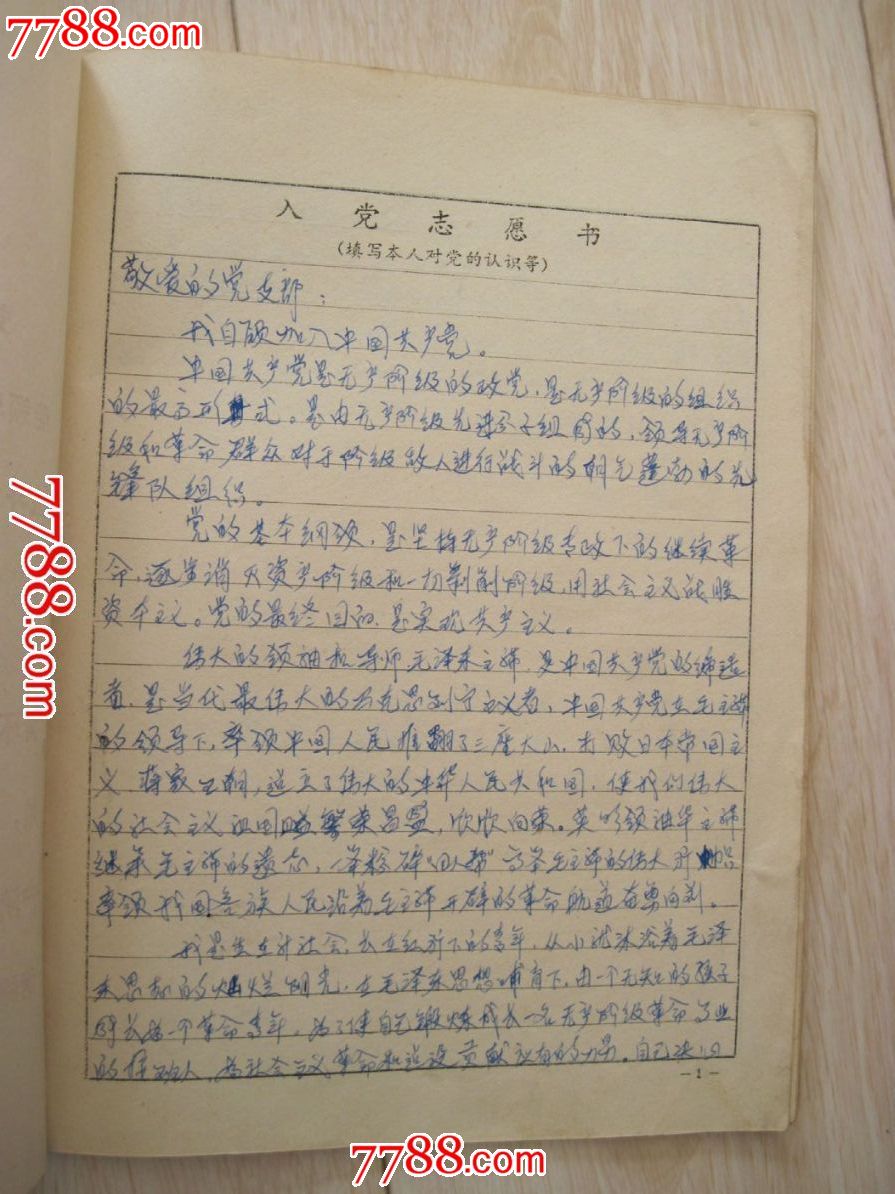 7788.com
7788.com
入党志愿书
(填写本人对党的认识等)
敬爱的党支部：
我自愿加入中国共产党。
中国共产党是无产阶级的政党，是无产阶级的组织
的最高形式。是由无产阶级先进分子组成的，领导无产阶
级和革命群众对于阶级敌人进行战斗的朝气蓬勃的先
锋队组织。
党的基本纲领，是坚持无产阶级专政下的继续革
命，逐步消灭资产阶级和一切剥削阶级，用社会主义战胜
资本主义。党的最终目的，是实现共产主义。
伟大的领袖和导师毛泽东主席，是中国共产党的缔造
者，是当代最伟大的马克思列宁主义者，中国共产党在毛主席
的领导下，率领中国人民推翻了三座大山，打败日本帝国主
义，蒋家王朝，建立了伟大的中华人民共和国，使我们伟大
的社会主义祖国繁荣昌盛，欣欣向荣。英明领袖华主席
继承毛主席的遗志，一举粉碎“四人帮”高举毛主席的伟大旗帜
率领我国各族人民沿着毛主席开辟的革命航道奋勇向前。
我是生在新社会，长在红旗下的青年，从小就沐浴着毛泽
东思想的灿烂阳光，在毛泽东思想哺育下，由一个无知的孩子
成长为一个革命青年。为了使自己锻炼成长一名无产阶级革命事业
的接班人，为社会主义革命和建设贡献应有的力量。自己决心
-1-
7788.com
7788.com